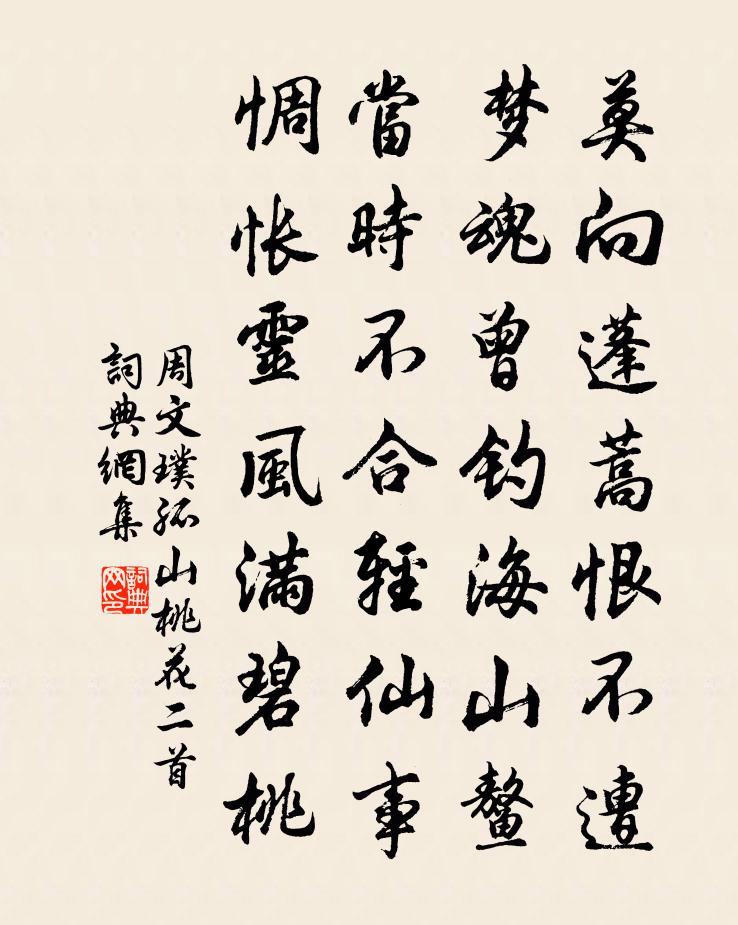 莫向蓬蒿恨不遭
梦魂曾钓海山鳌
當時不合輕仙事
惆怅靈風滿碧桃
周文璞孤山桃花二首
詞典網集
詞典网印